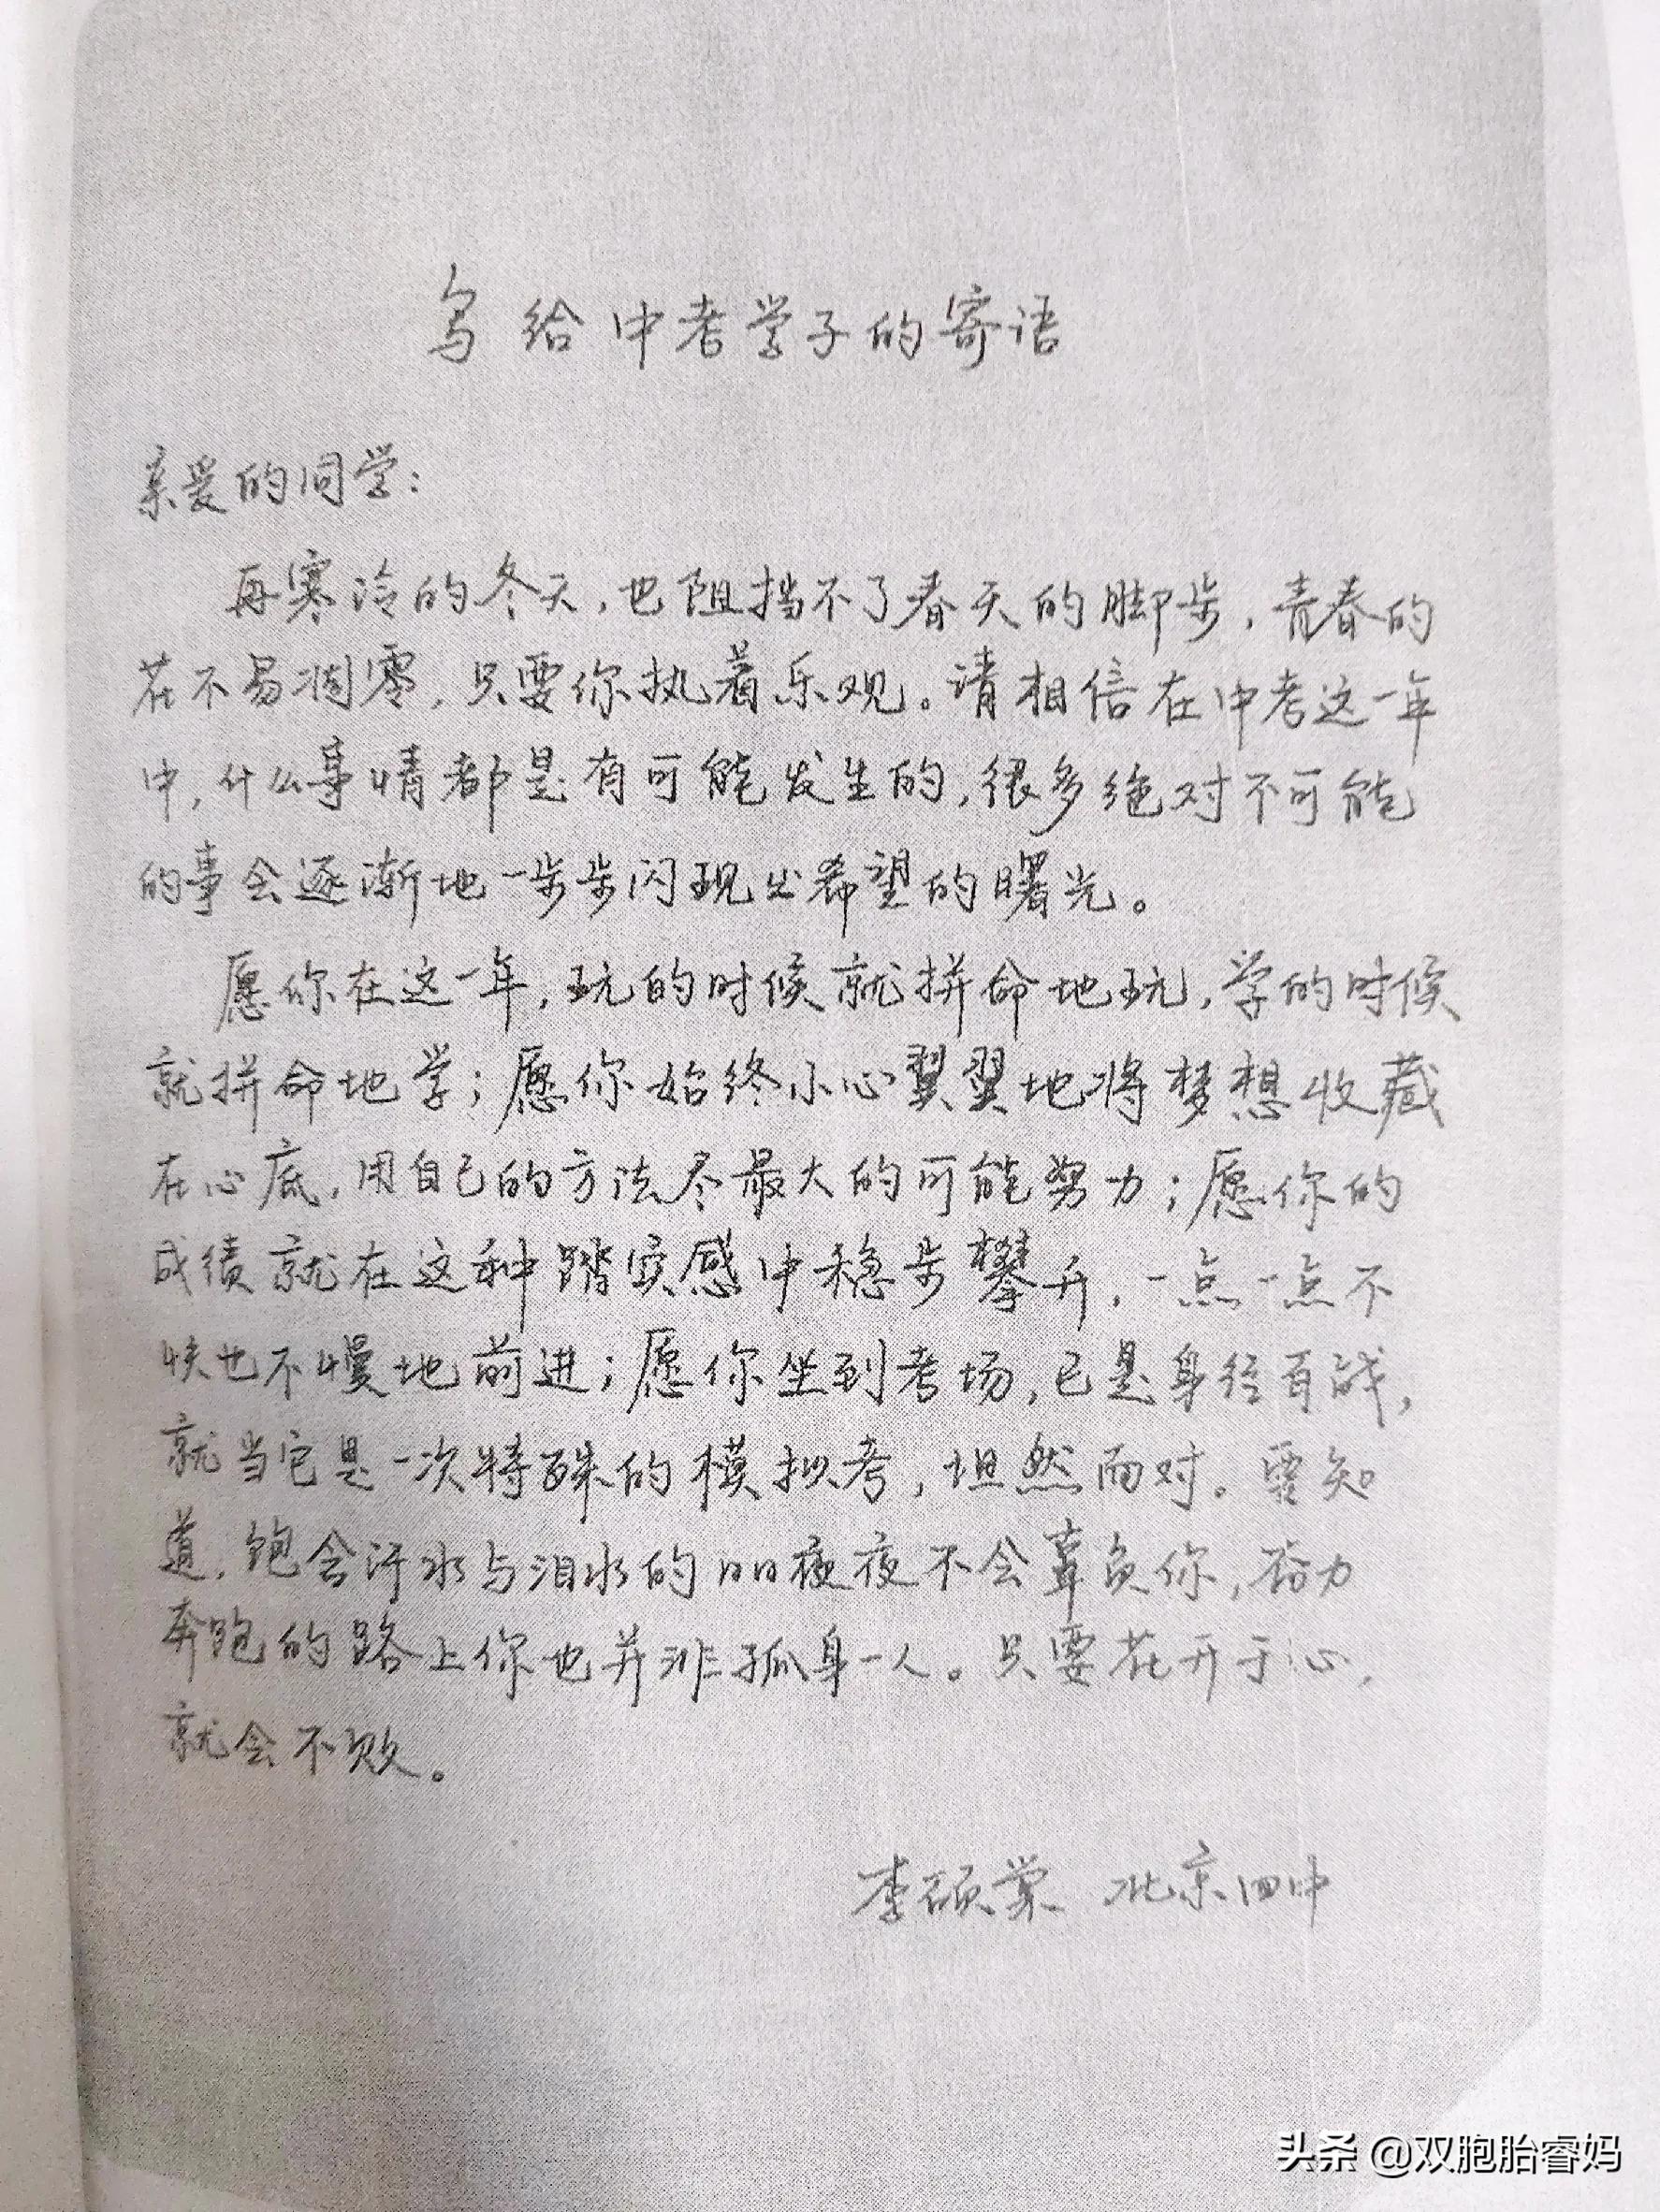 写给中考学子的寄语
亲爱的同学：
再寒冷的冬天，也阻挡不了春天的脚步，青春的
花不易凋零，只要你执着乐观。请相信在中考这一年
中，什么事情都是有可能发生的，很多绝对不可能
的事会逐渐地一步步闪现出希望的曙光。
愿你在这一年，玩的时候就拼命地玩，学的时候
就拼命地学；愿你始终小心翼翼地将梦想收藏
在心底，用自己的方法尽最大的可能努力；愿你的
成绩就在这种踏实感中稳步攀升，一点一点不
快也不慢地前进；愿你坐到考场，已是身经百战，
就当它是一次特殊的模拟考，坦然面对。要知
道，饱含汗水与泪水的日日夜夜不会辜负你，奋力
奔跑的路上你也并非孤身一人。只要花开于心，
就会不败。
李硕棠 北京四中
头条 @双胞胎睿妈